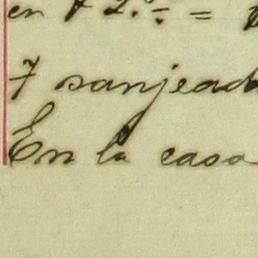 en
7 sanjead
En la casa